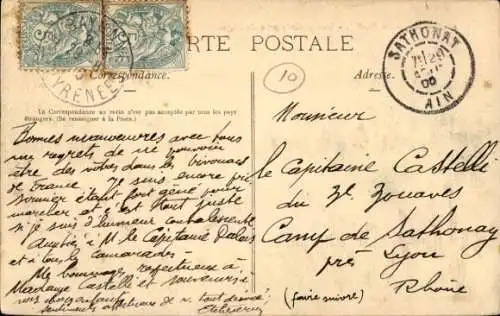 CARTE POSTALE
Correspondance.
Adresse.
La Correspondance au recto n'est pas acceptée par tous les pays
étrangers. (Se renseigner à la Poste.)
10
SATHONAY
AIN
PYRÉNÉES
Bonnes manoeuvres avec tous
mes regrets de ne pouvoir
être des vôtres dans le bivouacs
de France. Je suis encore pri
sonnier étant fort gêné pour
marcher et c'est tout juste
si je suis d'humeur
à M le Capitaine
et à tous les camarades.
Mes hommages respectueux à
Madame Castelli et
vos
sentiments affectueux de v. tout dévoué
Monsieur
le Capitaine Castelli
du 3e Zouaves
Camp de Sathonay
près Lyon
Rhône
(faire suivre)